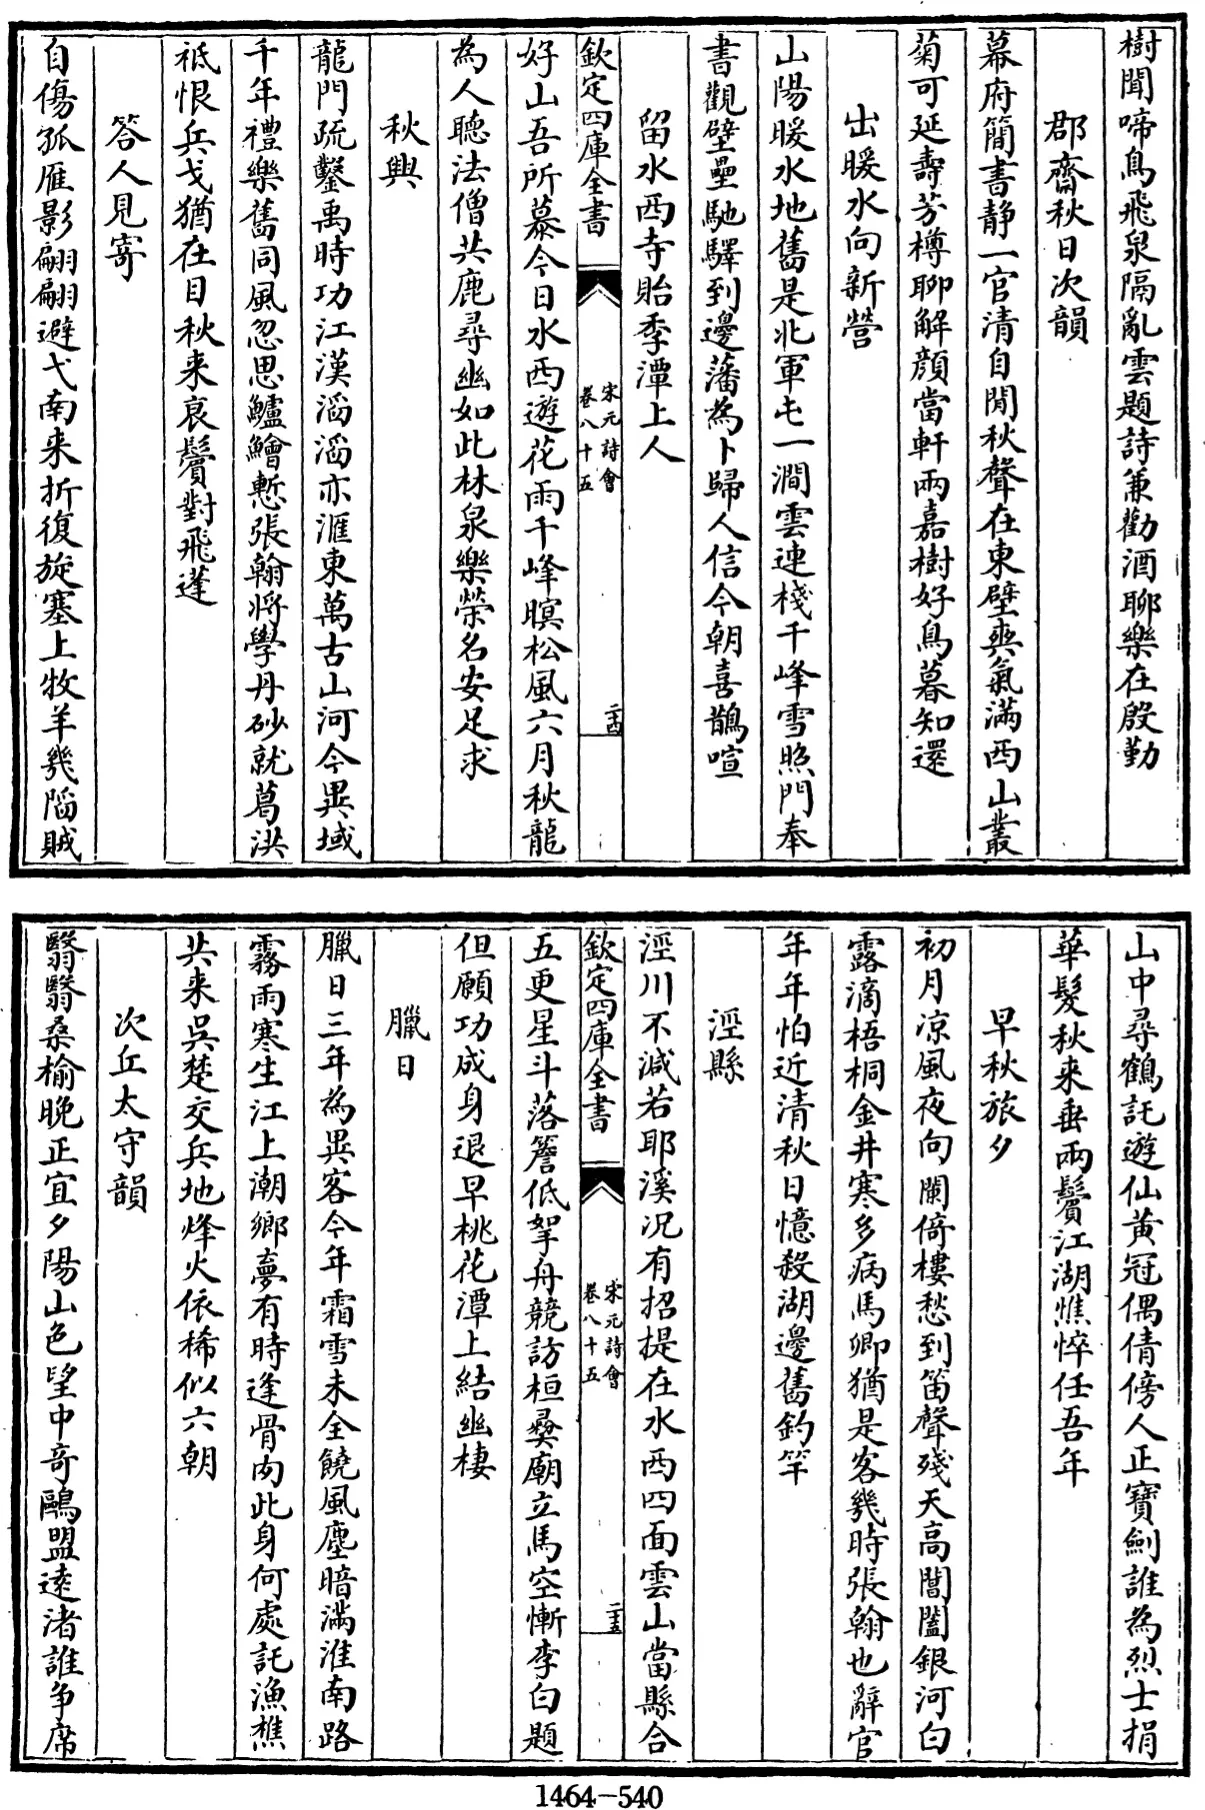 樹聞啼鳥飛泉隔亂雲題詩兼勸酒聊樂在殷勤
郡齋秋日次韻
幕府簡書静一官清自閒秋聲在東壁爽氣滿西山叢
菊可延壽芳樽聊解顔當軒兩嘉樹好鳥暮知還
出暖水向新營
山陽暖水地舊是北軍屯一澗雲連棧千峰雪照門奉
書觀壁壘馳驛到邊藩為卜歸人信今朝喜鵲喧
留水西寺貽季潭上人
欽定四庫全書
宋元詩會
卷八十五
二十四
好山吾所慕今日水西遊花雨千峰暝松風六月秋龍
為人聽法僧共鹿尋幽如此林泉樂榮名安足求
秋興
龍門疏鑿禹時功江漢滔滔亦滙東萬古山河今異域
千年禮樂舊同風忽思鱸鱠慙張翰將學丹砂就葛洪
祗恨兵戈猶在目秋来哀鬢對飛蓬
答人見寄
自傷孤雁影翩翩避弋南来折復旋塞上牧羊幾陷賊
山中尋鶴託遊仙黄冠偶倩傍人正寶劍誰為烈士捐
華髮秋来垂兩鬢江湖憔悴任吾年
早秋旅夕
初月凉風夜向闌倚樓愁到笛聲殘天高閶闔銀河白
露滴梧桐金井寒多病馬卿猶是客幾時張翰也辭官
年年怕近清秋日憶殺湖邊舊釣竿
涇縣
涇川不減若耶溪况有招提在水西四面雲山當縣合
欽定四庫全書
宋元詩會
卷八十五
二十五
五更星斗落簷低拏舟競訪桓彜廟立馬空慚李白題
但願功成身退早桃花潭上結幽棲
臘日
臘日三年為異客今年霜雪未全饒風塵暗滿淮南路
霧雨寒生江上潮鄉夢有時逢骨肉此身何處託漁樵
共来吳楚交兵地烽火依稀似六朝
次丘太守韻
翳翳桑榆晚正宜夕陽山色望中奇鷗盟遠渚誰争席
1464-540